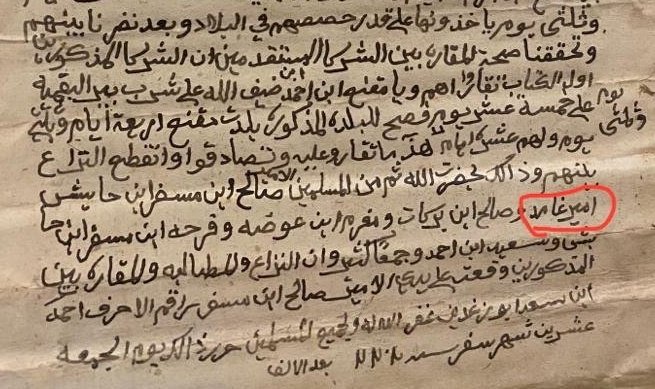 وثلثي يوم ياخذونها على قدر حصصهم في البلاد وبعد نضرنا بينهم
وتحققنا صحة المقاره بين الشركا المتقدمين ان الشركا المذكورين
اول الكتاب تقاروا هم ويا مقنع ابن احمد ابن ضيف الله على شرب بير البقعيه
على خمسة عشر يوم فصح للبلاد المذكوره بلدت مقنع اربعة ايام وثلثي يوم وثلثي
يوم ولهم عشره ايام هذا ما تقارو عليه وتصادقوا وانقطع النزاع
بينهم وذالك بحضرت الله ثم من المسلمين الامير صالح ابن مسفر ابن حابش
امير غامد وصالح ابن بركات ومغرم ابن عوضه وفرحه ابن مسفر ابن حا
بش وسعيد ابن احمد وجمعا كثير وان النزاع والمطالبه والمقاره بين
المذكورين وقعت على يدي الامير صالح ابن مسفر راقم الاحرف احمد
ابن سعد ابو بن غفر الله له ولجميع المسلمين حرر ذالك يوم الجمعه
عشرين شهر سفر سنه بعد الالف